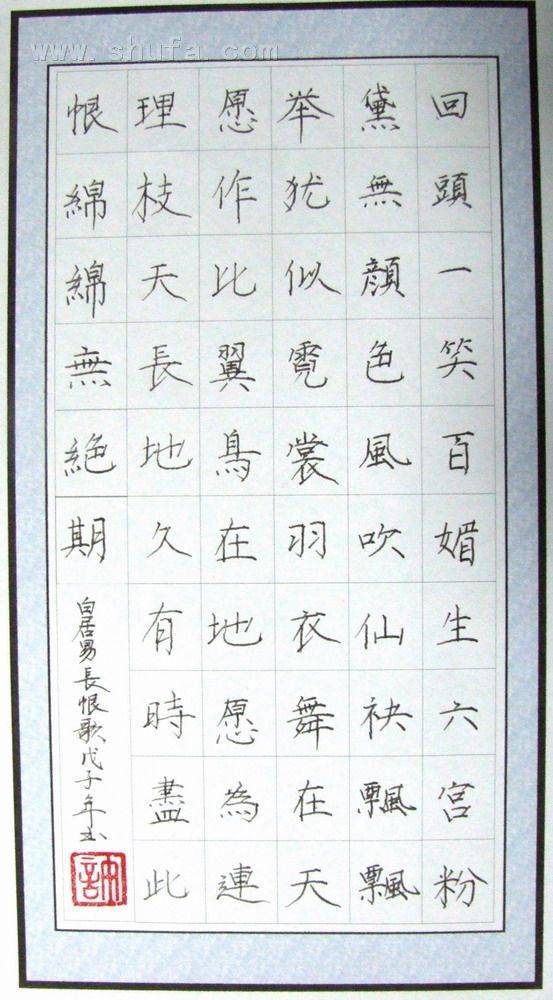 www.shufa.com
回頭一笑百媚生六宮粉
黛無顔色風吹仙袂飄飄
举犹似霓裳羽衣舞在天
愿作比翼鳥在地愿為連
理枝天長地久有時盡此
恨綿綿無絶期
白居易長恨歌戊子年书